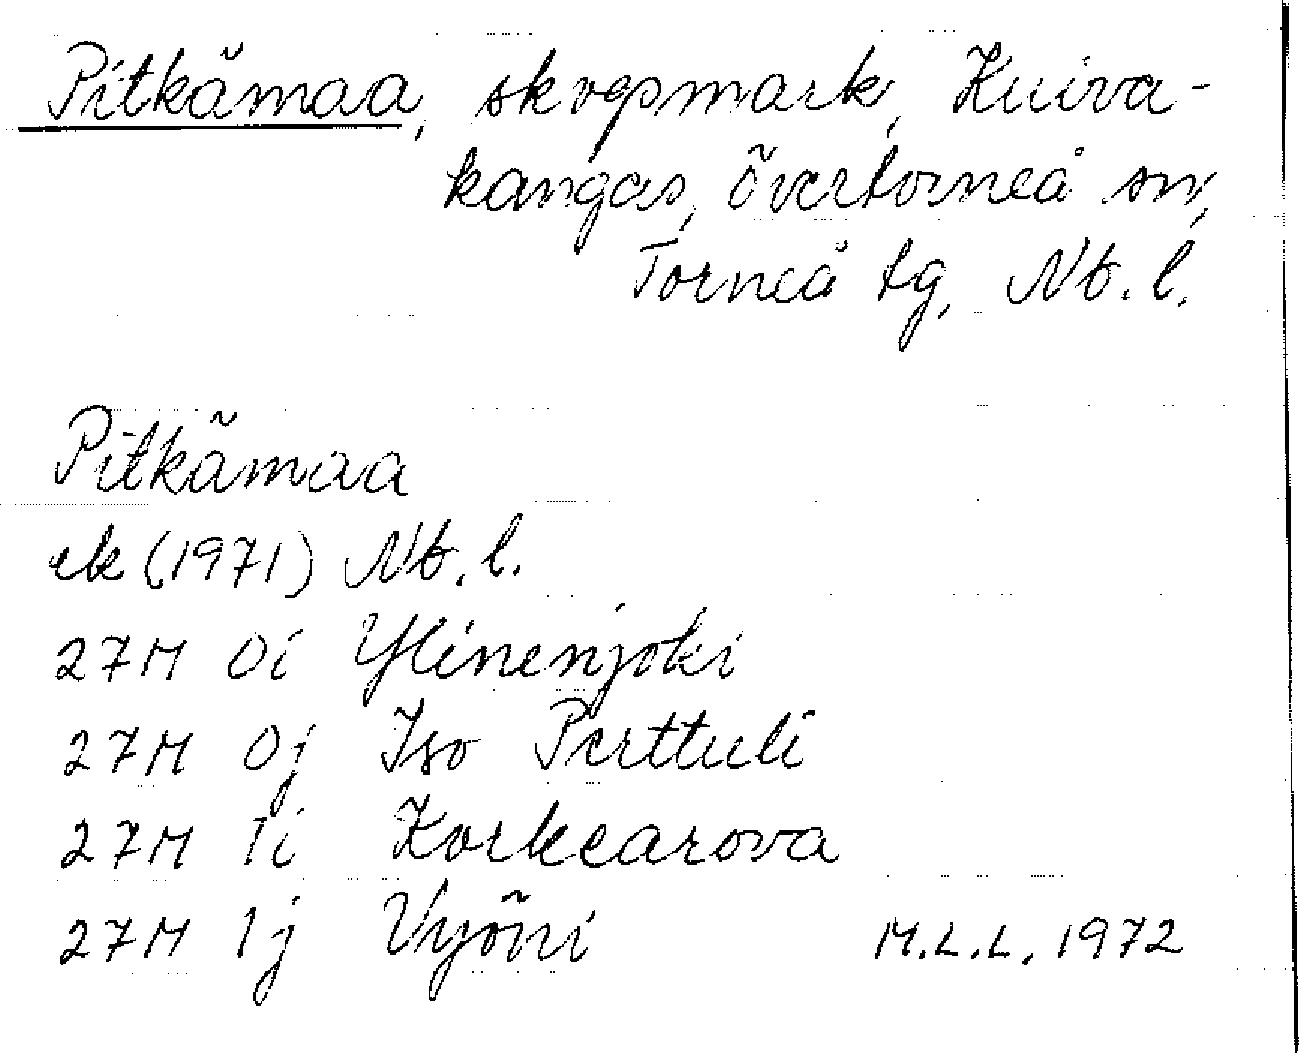 Pitkämaa, skogsmark, Kuiva-
kangas, Övertorneå sn,
Torneå tg, Nb. l.
Pitkämaa
ek (1971) Nb. l.
27M 0i Ylinenjoki
27M 0j Iso Perttuli
27M 1i Korkearova
27M 1j Vyöni M.L.L. 1972